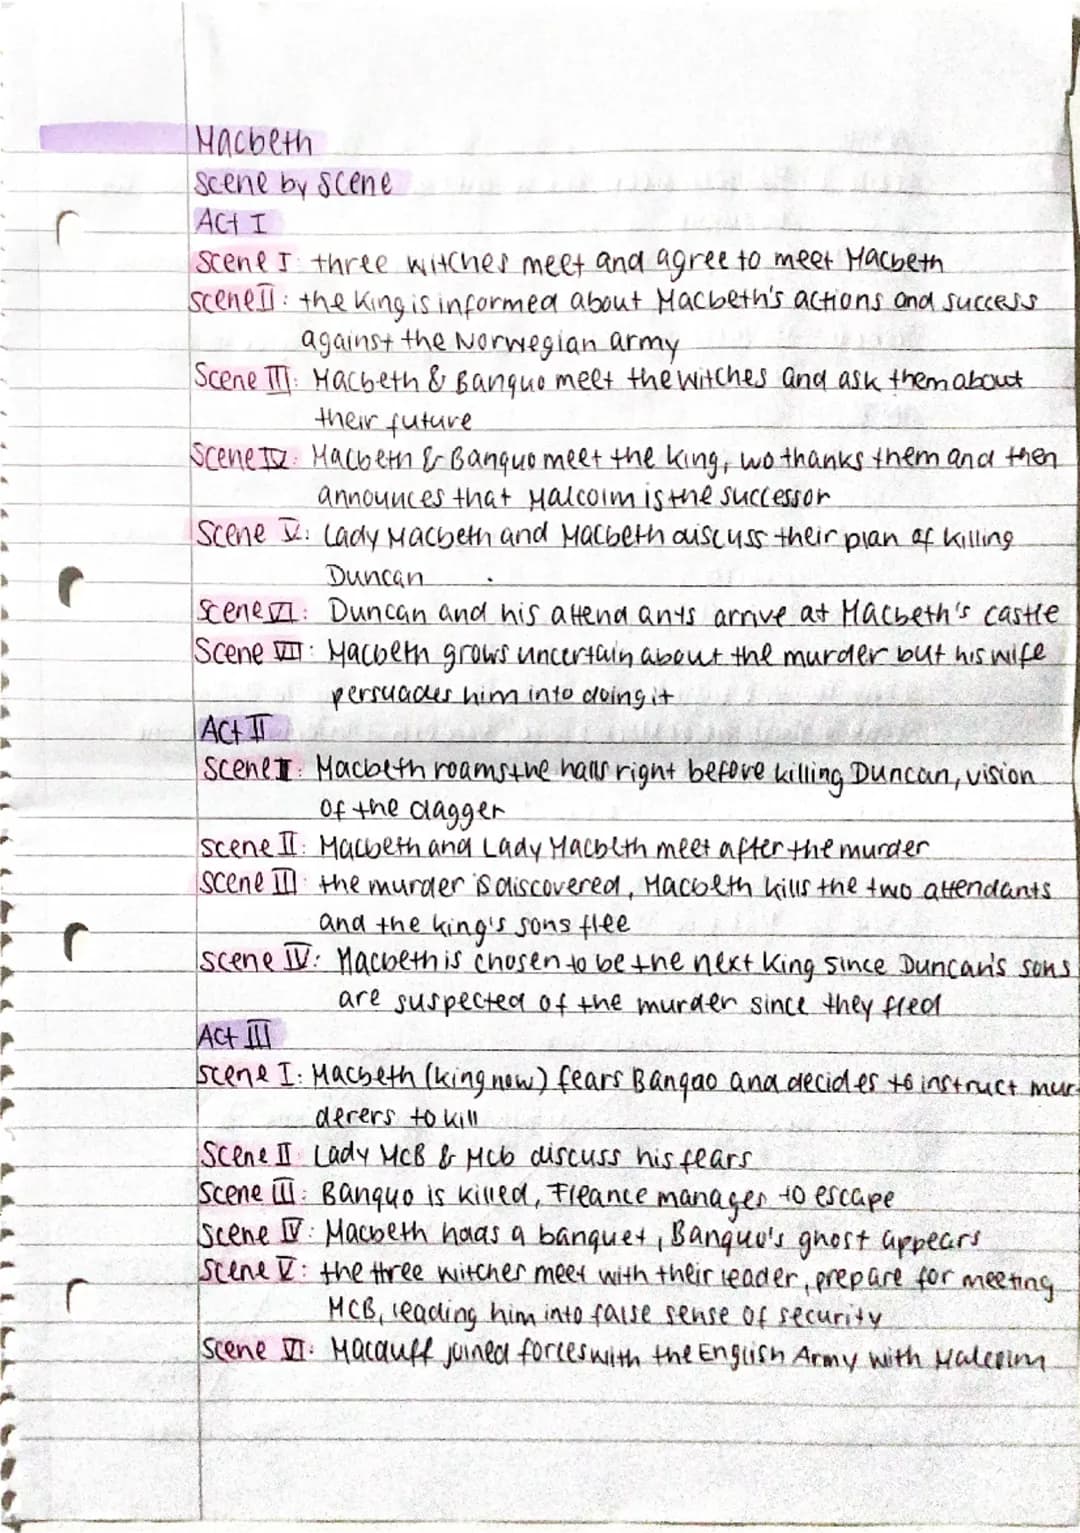 Macbeth
Scene by scene
Act I
Scene I: three witches meet and agree to meet Macbeth
Scene II: the king is informed about Macbeth's actions and success
against the Norwegian army
Scene III: Macbeth & Banquo meet the witches and ask them about
their future
Scene IV: Macbeth & Banquo meet the king, wo thanks them and then
announces that Malcolm is the successor
Scene V: Lady Macbeth and Macbeth discuss their plan of killing
Duncan
Scene VI: Duncan and his attendants arrive at Macbeth's castle
Scene VII: Macbeth grows uncertain about the murder but his wife
persuades him into doing it
Act II
Scene I: Macbeth roams the halls right before killing Duncan, vision
of the dagger
Scene II: Macbeth and Lady Macbeth meet after the murder
Scene III: the murder is discovered, Macbeth kills the two attendants
and the king's sons flee
Scene IV: Macbeth is chosen to be the next King since Duncan's sons
are suspected of the murder since they fled
Act III
Scene I: Macbeth (king now) fears Banquo and decides to instruct mur-
derers to kill
Scene II: Lady McB & Mcb discuss his fears
Scene III: Banquo is killed, Fleance manages to escape
Scene IV: Macbeth hoas a banquet, Banquo's ghost appears
Scene V: the three witches meet with their leader, prepare for meeting
MCB, leading him into false sense of security
Scene VI: Macduff joined forces with the English Army with Malcolm